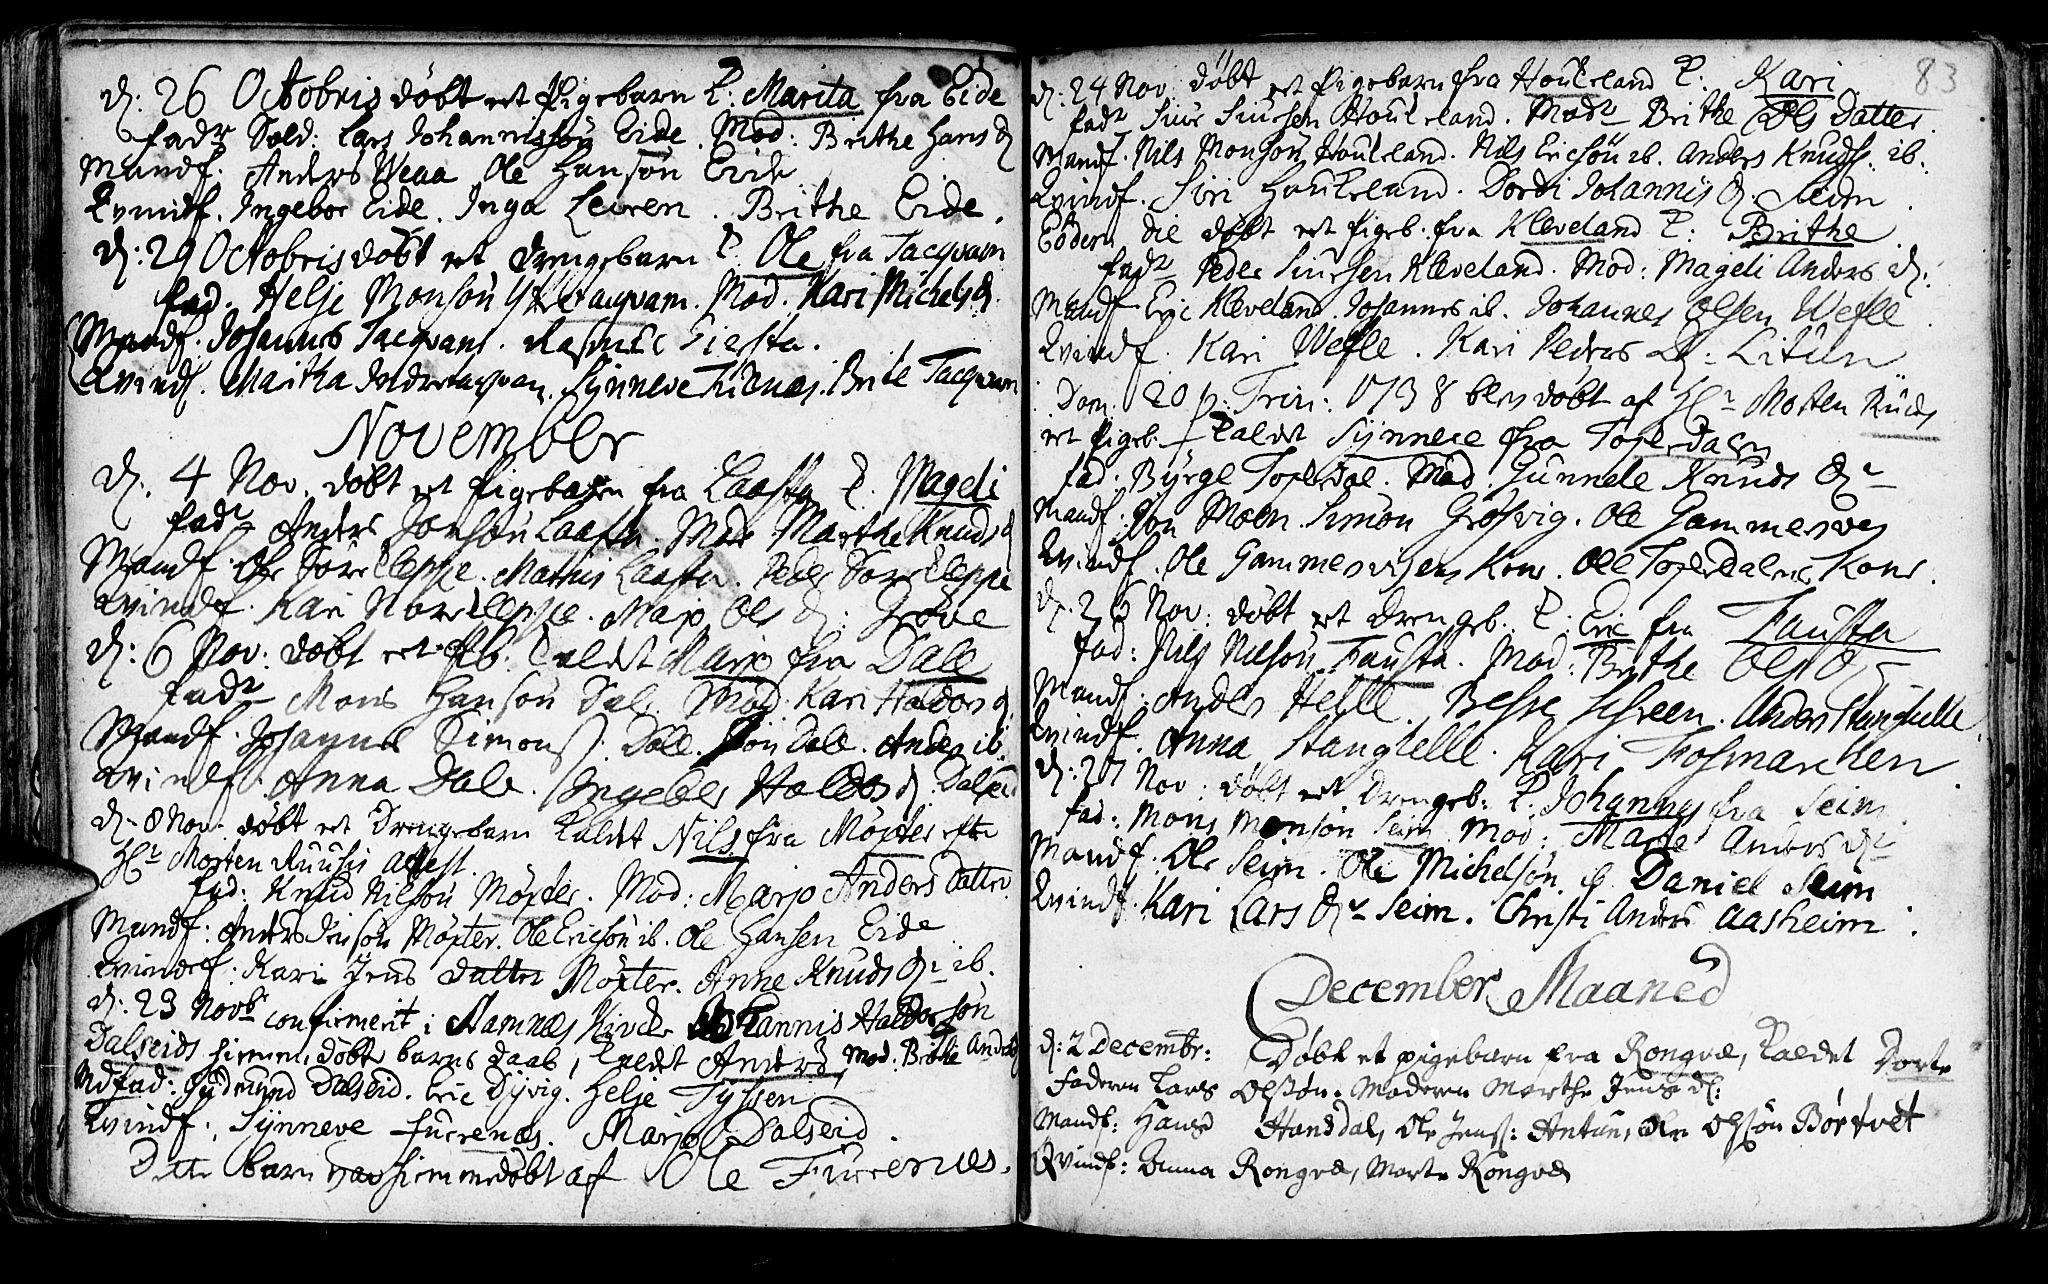 d: 26 Octobris döbt et Pigebarn k: Marita fra Eide
fadr Sold: Lars Johannissön Eide. Mod: Brithe Hans d
Mandf. Anders Weaa Ole Hansön Eide
Qvindf. Ingebor Eide. Inga Leiren. Brithe Eide.
d: 29 Octobris döbt et drengebarn k. Ole fra Tacqvam
fad. Helje Monsön Tacqvam. Mod. Kari Michels d.
Mandf. Johannes Tacqvam. Rasmus
Qvindf. Maritha Indretacqvam. Synneve Brite Tacqvam
November
d. 4 Nov. döbt et Pigebarn fra Laasta k. Mageli
fadr Anders Jonsön Laasta. Mod Marthe Knuds d
Mandf. Ole Söre Kleppe. Mathis Laasta. Peder Söre Kleppe
Qvindf. Kari Nore Kleppe. Marjo Ols d: Gröve
d: 6 Nov: döbt et Pb. kaldet Marjo fra Dale
fadr Mons Hansön Dale. Mod. Kari Haldors d.
Mandf. Johannes Simons. Dale. Jön Dale. Anders ib.
Qvindf. Anna Dale. Ingebor Haldors d. Dalseid
d. 8 Nov. döbt et Drengebarn kaldet Nils fra Möxter efter
Hr Morten Ruusis attest.
fad: Knud Nilssön Möxter. Mod: Marjo Anders datter
Mandf: Anders Jensön Möxter. Ole Ericsön ib. Ole Hansen Eide
Qvindf. Kari Jens datter Möxter. Anne Knuds dr ib.
d: 23 Novbr confirmerit i Stamnæs Kircke Johannis Haldorsön
Dalseids hiemmedöbte barns daab, kaldet Anders, Mod. Brithe Anders d
Mdfad: Gudmund Dalseid. Eric Dyvig. Helje Tyssen
Qvindf. Synneve Furrenæs. Marjo Dalseid.
Dette barn var hiemmedöbt af Ole Furrenes.
83
d: 24 Nov. döbt et Pigebarn fra Houkeland k: Kari
fadr Siur Siursen Houkeland. Modr Brithe Ols Datter.
Mandf. Nils Monsön Houkeland. Nils Ericsön ib. Anders Knuds. ib.
Qvindf. Siri Houkeland. Dordi Johannis d. Seim.
Eodem die döbt et Pigeb. fra Kleveland k: Brithe
fadr Peder Siursen Kleveland. Mod: Mageli Anders d:
Mandf Eric Kleveland. Johannes ib. Johannes Olsen Wefle.
Qvindf. Kari Wefle. Kari Peders d: Litun
Dom. 20 p: Trin: 1738 blev döbt af Hr Morten Ruus
et Pigeb. kaldet Synneve fra Toskedalen
fad. Byrge Toskedal. Mod. Gunnele Knuds dr
Mandf. Jon Moen. Simon Grösvig. Ole Gammersves
Qvindf. Ole Gammersvigens Kone. Ole Toskedalens Kone.
d. 26 Nov: döbt et Drengeb. k. Eric fra Fausta
fad: Nils Nilsön Fausta. Mod: Brithe Ols dr
Mandf. Anders Helle. Besse Anders Stanghelle.
Qvindf. Anna Stanghelle. Kari Fosmarcken.
d: 27 Nov: döbt et Drengeb: k. Johannes fra Seim.
fad: Mons Monsön Seim Mod: Marte Anders dr
Mandf. Ole Seim. Ole Michelsön. Daniel Seim
Qvindf. Kari Lars dr Seim. Christi Anders Aasheim.
December Maaned
d: 2 Decembr: Döbt et pigebarn fra Rongve, kaldet Dorte
Faderen Lars Olssön. Moderen Marthe Jens d:
Mandf: Hans Hansdal, Ole Jens: Antun, Ole Olssön Börtvet
Qvindf: Anna Rongve, Marte Rongve